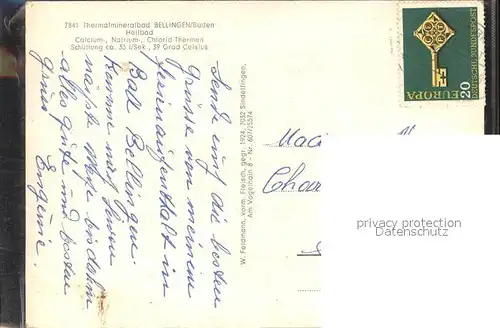 7841 Thermalmineralbad BELLINGEN/Baden
Heilbad
Calcium-, Natrium-, Chlorid-Thermen
Schüttung ca. 55 l/Sek., 39 Grad Celsius
Sende Euch die besten
Grüsse von meinem
Ferienaufenthalt in
Bad Bellingen
Komme nach Hause
näxste Woche bis dahin
alles gute und besten
Gruss
Eugénie.
W. Feldmann, vorm. Fleisch, gegr. 1924, 7032 Sindelfingen,
Am Vogelhain 8 · Nr. 607/25574
EUROPA
DEUTSCHE BUNDESPOST
20
privacy protection
Datenschutz